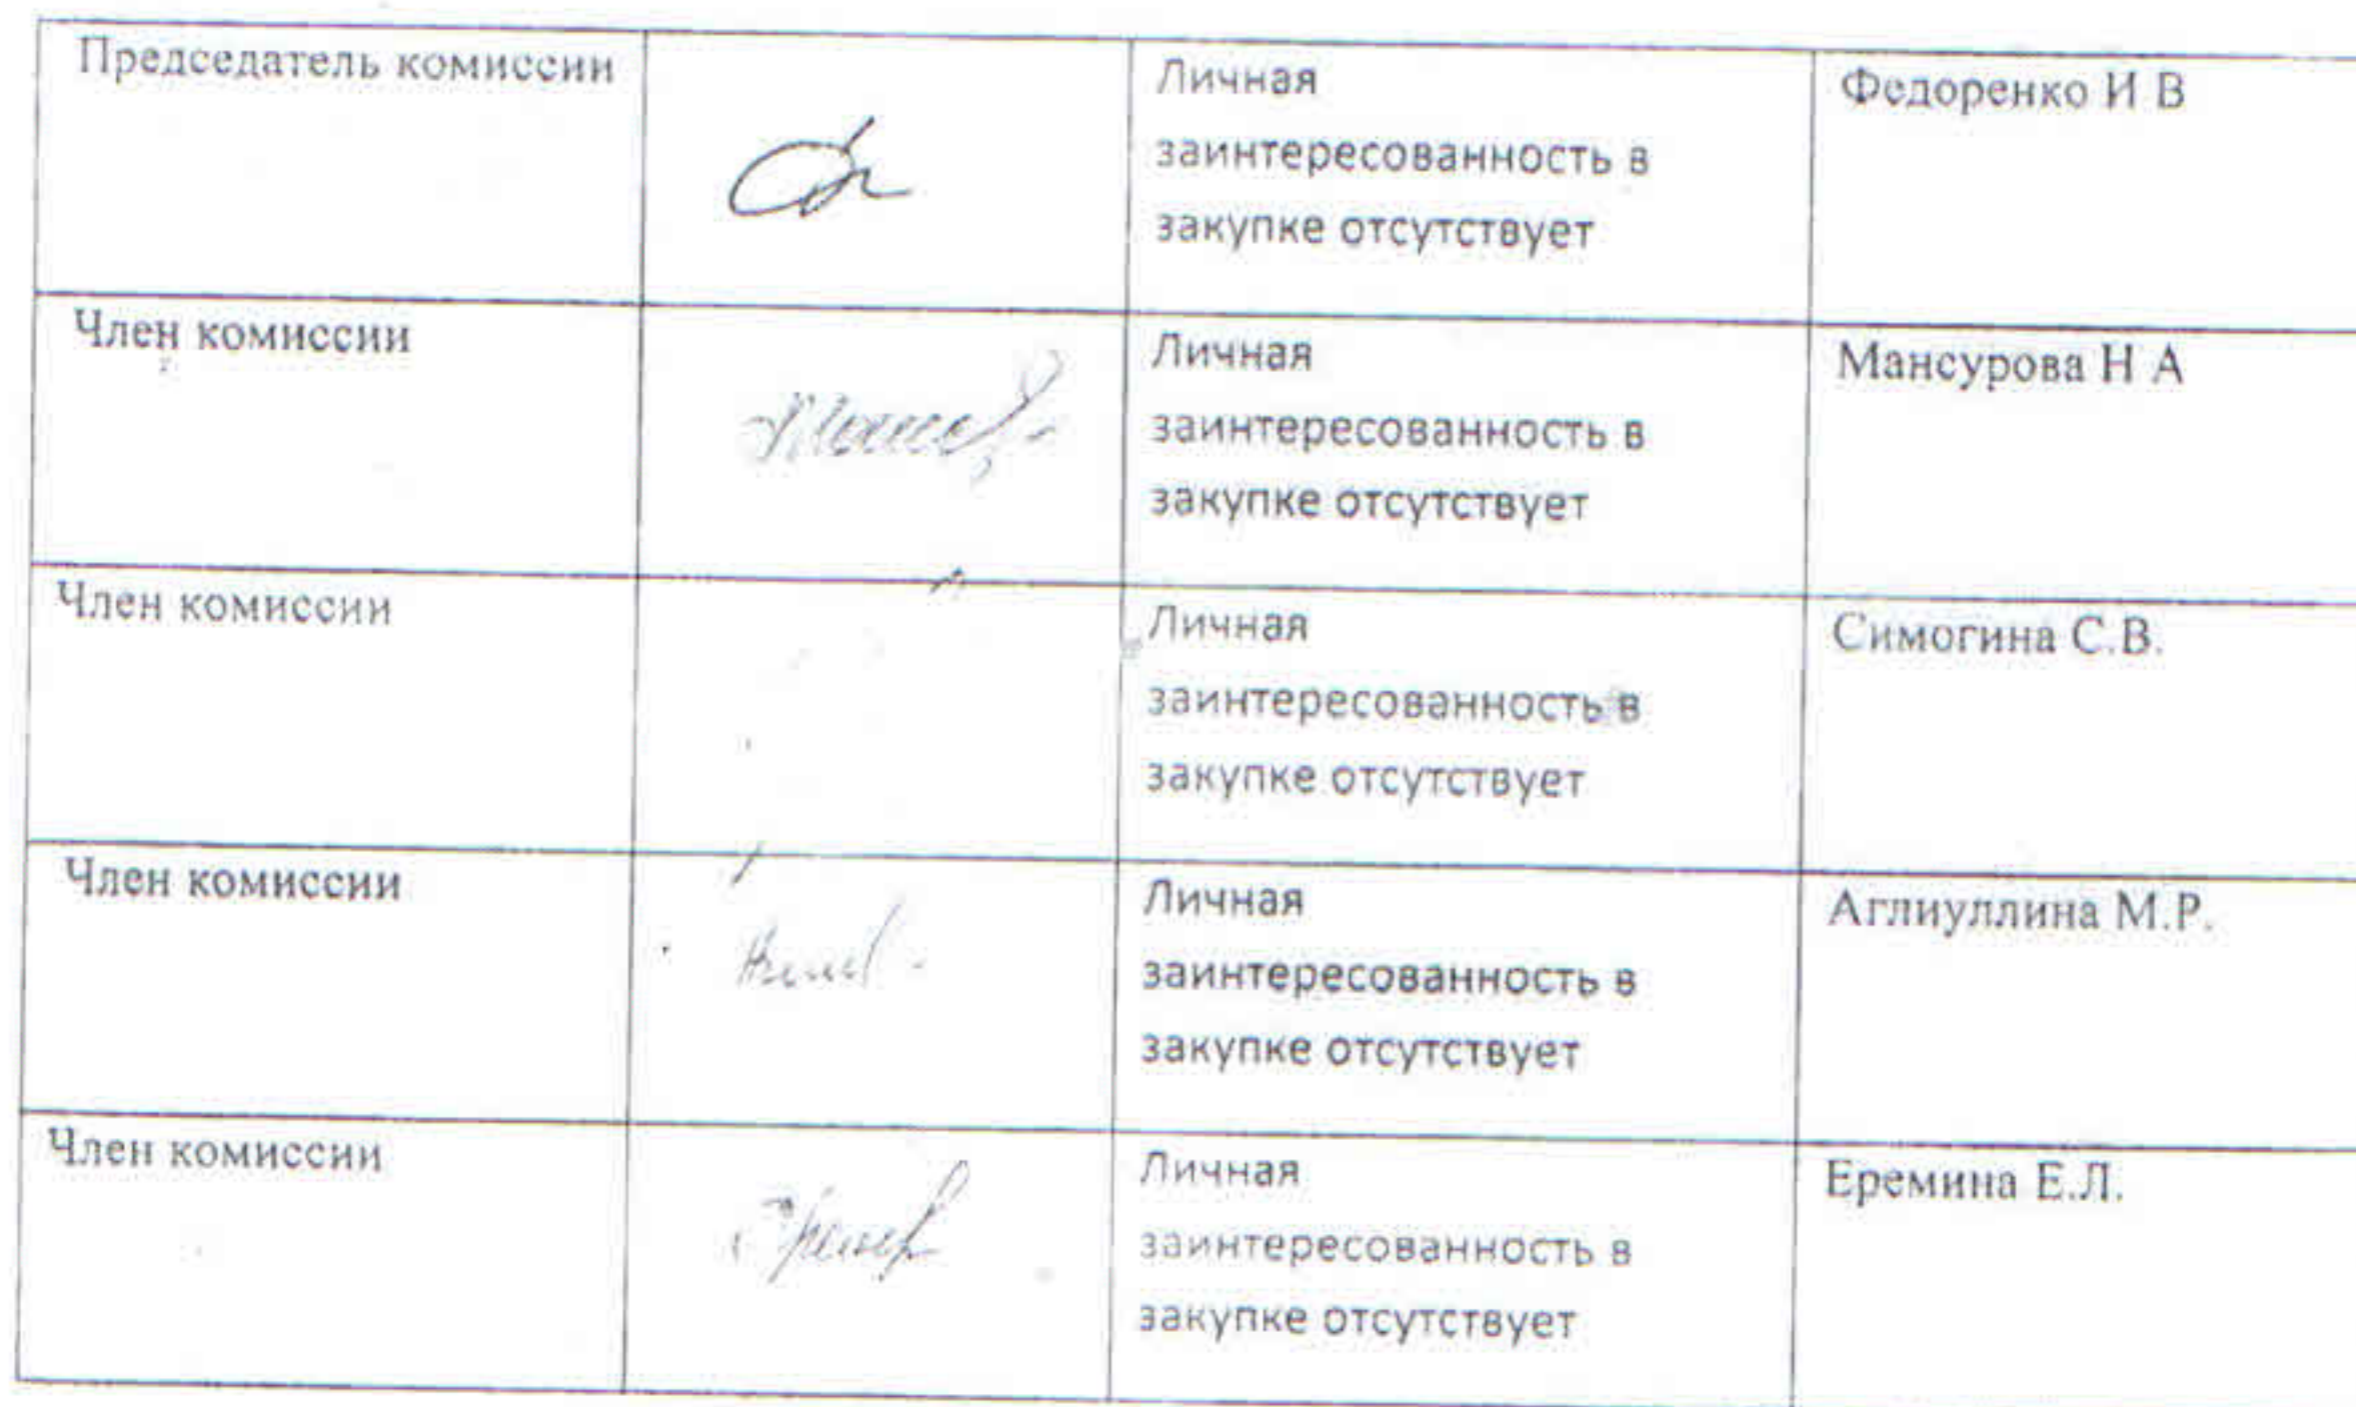 Председатель комиссии
Личная
заинтересованность в
закупке отсутствует
Федоренко И В
Член комиссии
Личная
заинтересованность в
закупке отсутствует
Мансурова Н А
Член комиссии
Личная
заинтересованность в
закупке отсутствует
Симогина С.В.
Член комиссии
Личная
заинтересованность в
закупке отсутствует
Аглиуллина М.Р.
Член комиссии
Личная
заинтересованность в
закупке отсутствует
Еремина Е.Л.